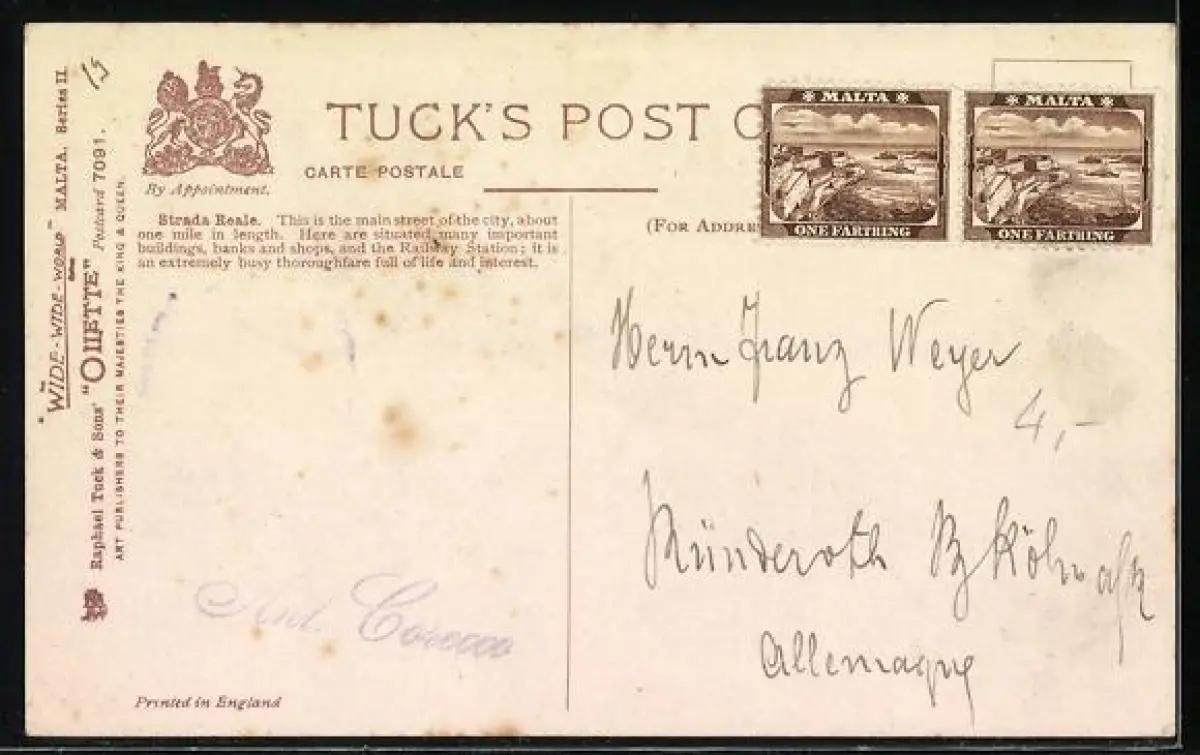 "WIDE-WIDE-WORLD" MALTA. Series II.
Raphael Tuck & Sons' "OILETTE" Postcard 7091.
ART PUBLISHERS TO THEIR MAJESTIES THE KING & QUEEN.
15
By Appointment.
TUCK'S POST C
CARTE POSTALE
MALTA
ONE FARTHING
MALTA
ONE FARTHING
(FOR ADDRE
Strada Reale. This is the main street of the city, about
one mile in length. Here are situated many important
buildings, banks and shops, and the Railway Station; it is
an extremely busy thoroughfare full of life and interest.
Herrn Franz Weyer
4,-
Ründeroth Bz Köln
Allemagne
And.
Printed in England